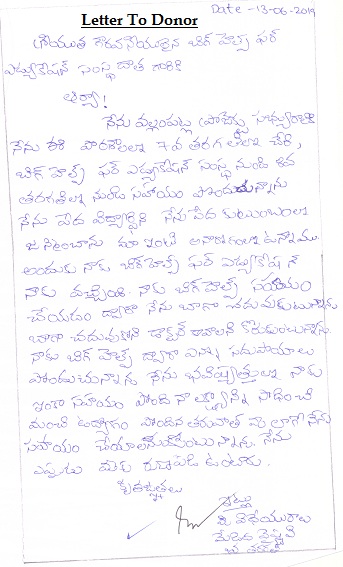 Date - 13-06-2019
Letter To Donor
గౌరవనీయులైన బిగ్ హెల్ప్ ఫర్
ఎడ్యుకేషన్ సంస్థ దాత గారికి
ఆర్యా!
నేను
నేను ఈ పాఠశాలలో 7వ తరగతిలో చేరి,
బిగ్ హెల్ప్ ఫర్ ఎడ్యుకేషన్ సంస్థ నుండి
తరగతి నుండి సహాయం పొందుతున్నాను
నేను పేద విద్యార్థిని నేను పేద కుటుంబంలో
జన్మించాను మా ఇంటి ఉన్నాము
అందుకు నాకు బిగ్ హెల్ప్ ఫర్ ఎడ్యుకేషన్
నాకు వచ్చింది. నాకు బిగ్ హెల్ప్ సహాయం
చేయడం ద్వారా నేను బాగా చదువుకుంటున్నాను
బాగా చదువుకొని డాక్టర్ కావాలని కోరుకుంటున్నాను.
నాకు బిగ్ హెల్ప్ ద్వారా ఎన్నో సదుపాయాలు
పొందుచున్నాను. నేను భవిష్యత్తులో నాకు
ఇంకా సహాయం పొంది నా లక్ష్యాన్ని సాధించి
మంచి ఉద్యోగం పొందిన తరువాత మీ లాగా నేను
సహాయం చేయాలనుకుంటున్నాను. నేను
ఎప్పుడు మీకు రుణపడి ఉంటాను.
కృతజ్ఞతలు
ఇట్లు